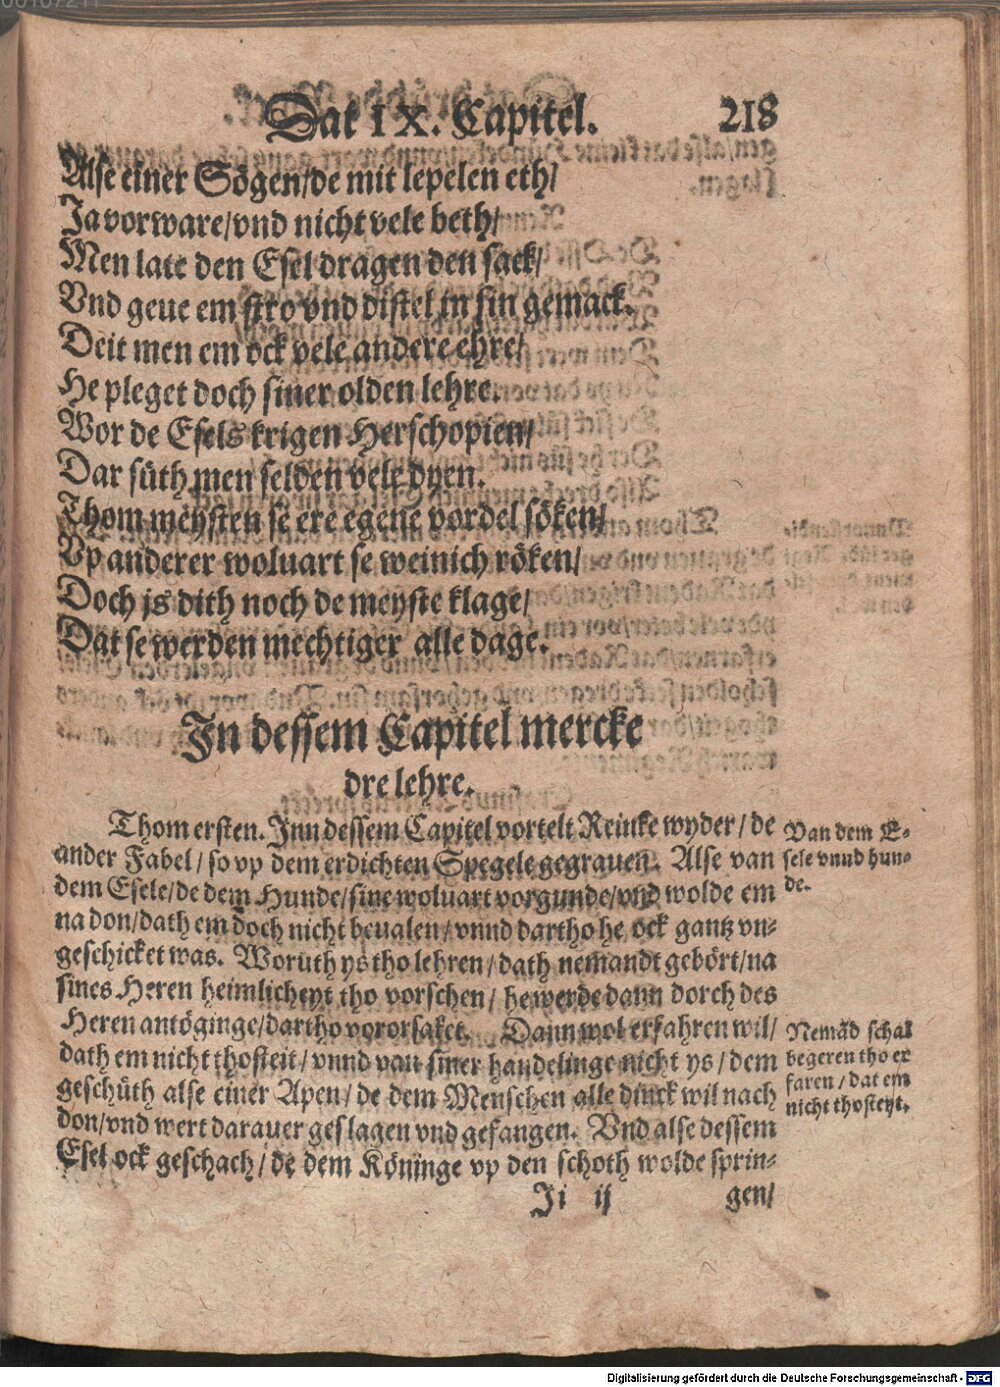 Dat IX. Capitel. 218
Alse einer Sögen/de mit lepelen eth/
Ja vorware/vnd nicht vele beth/
Men late den Esel dragen den sack/
Vnd geue em stro vnd distel in sin gemack.
Deit men em ock vele andere ehre/
He pleget doch siner olden lehre.
Wor de Esels krigen Herschopien/
Dar süth men selden vele dyen.
Thom meysten se ere egene vordel söken/
Vp anderer woluart se weinich röken/
Doch js dith noch de meyste klage/
Dat se werden mechtiger alle dage.
In dessem Capitel mercke
dre lehre.
Thom ersten. Inn dessem Capitel vortelt Reinke wyder/de
ander Fabel/so vp dem erdichten Spegele gegrauen. Alse van
dem Esele/de dem Hunde/sine woluart vorgunde/vnd wolde em
na don/dath em doch nicht beualen/vnnd dartho he ock gantz vn-
geschicket was. Woruth ys tho lehren/dath nemandt gebört/na
sines Heren heimlicheyt tho vorschen/he werde dann dorch des
Heren antöginge/dartho vororsaket. Dann wol erfahren wil/
dath em nicht thosteit/vnnd van siner handelinge nicht ys/dem
geschüth alse einer Apen/de dem Menschen alle dinck wil nach
don/vnd wert darauer geslagen vnd gefangen. Vnd alse dessem
Esel ock geschach/de dem Köninge vp den schoth wolde sprin-
Ji ij gen/
Van dem E-
sele vnnd hun-
de.
Nemād schal
begeren tho er
faren/dat em
nicht thosteyt.
Digitalisierung gefördert durch die Deutsche Forschungsgemeinschaft - DFG